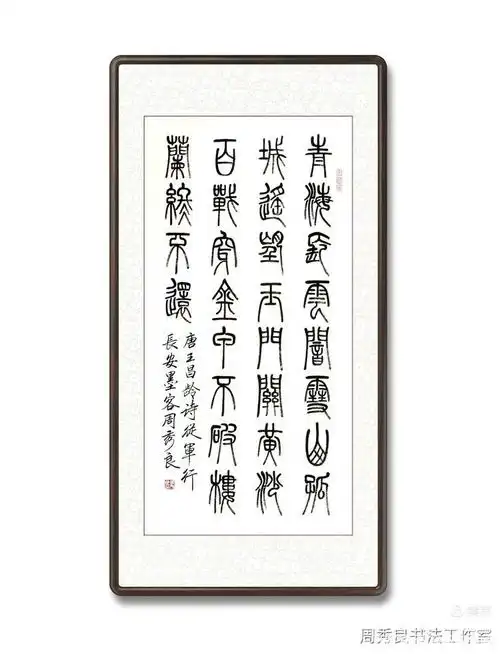 青海長雲闇雪山孤
城遙望玉門關黃沙
百戰穿金甲不破樓
蘭終不還
唐王昌龄诗從軍行
長安墨客周秀良
周秀良书法工作室